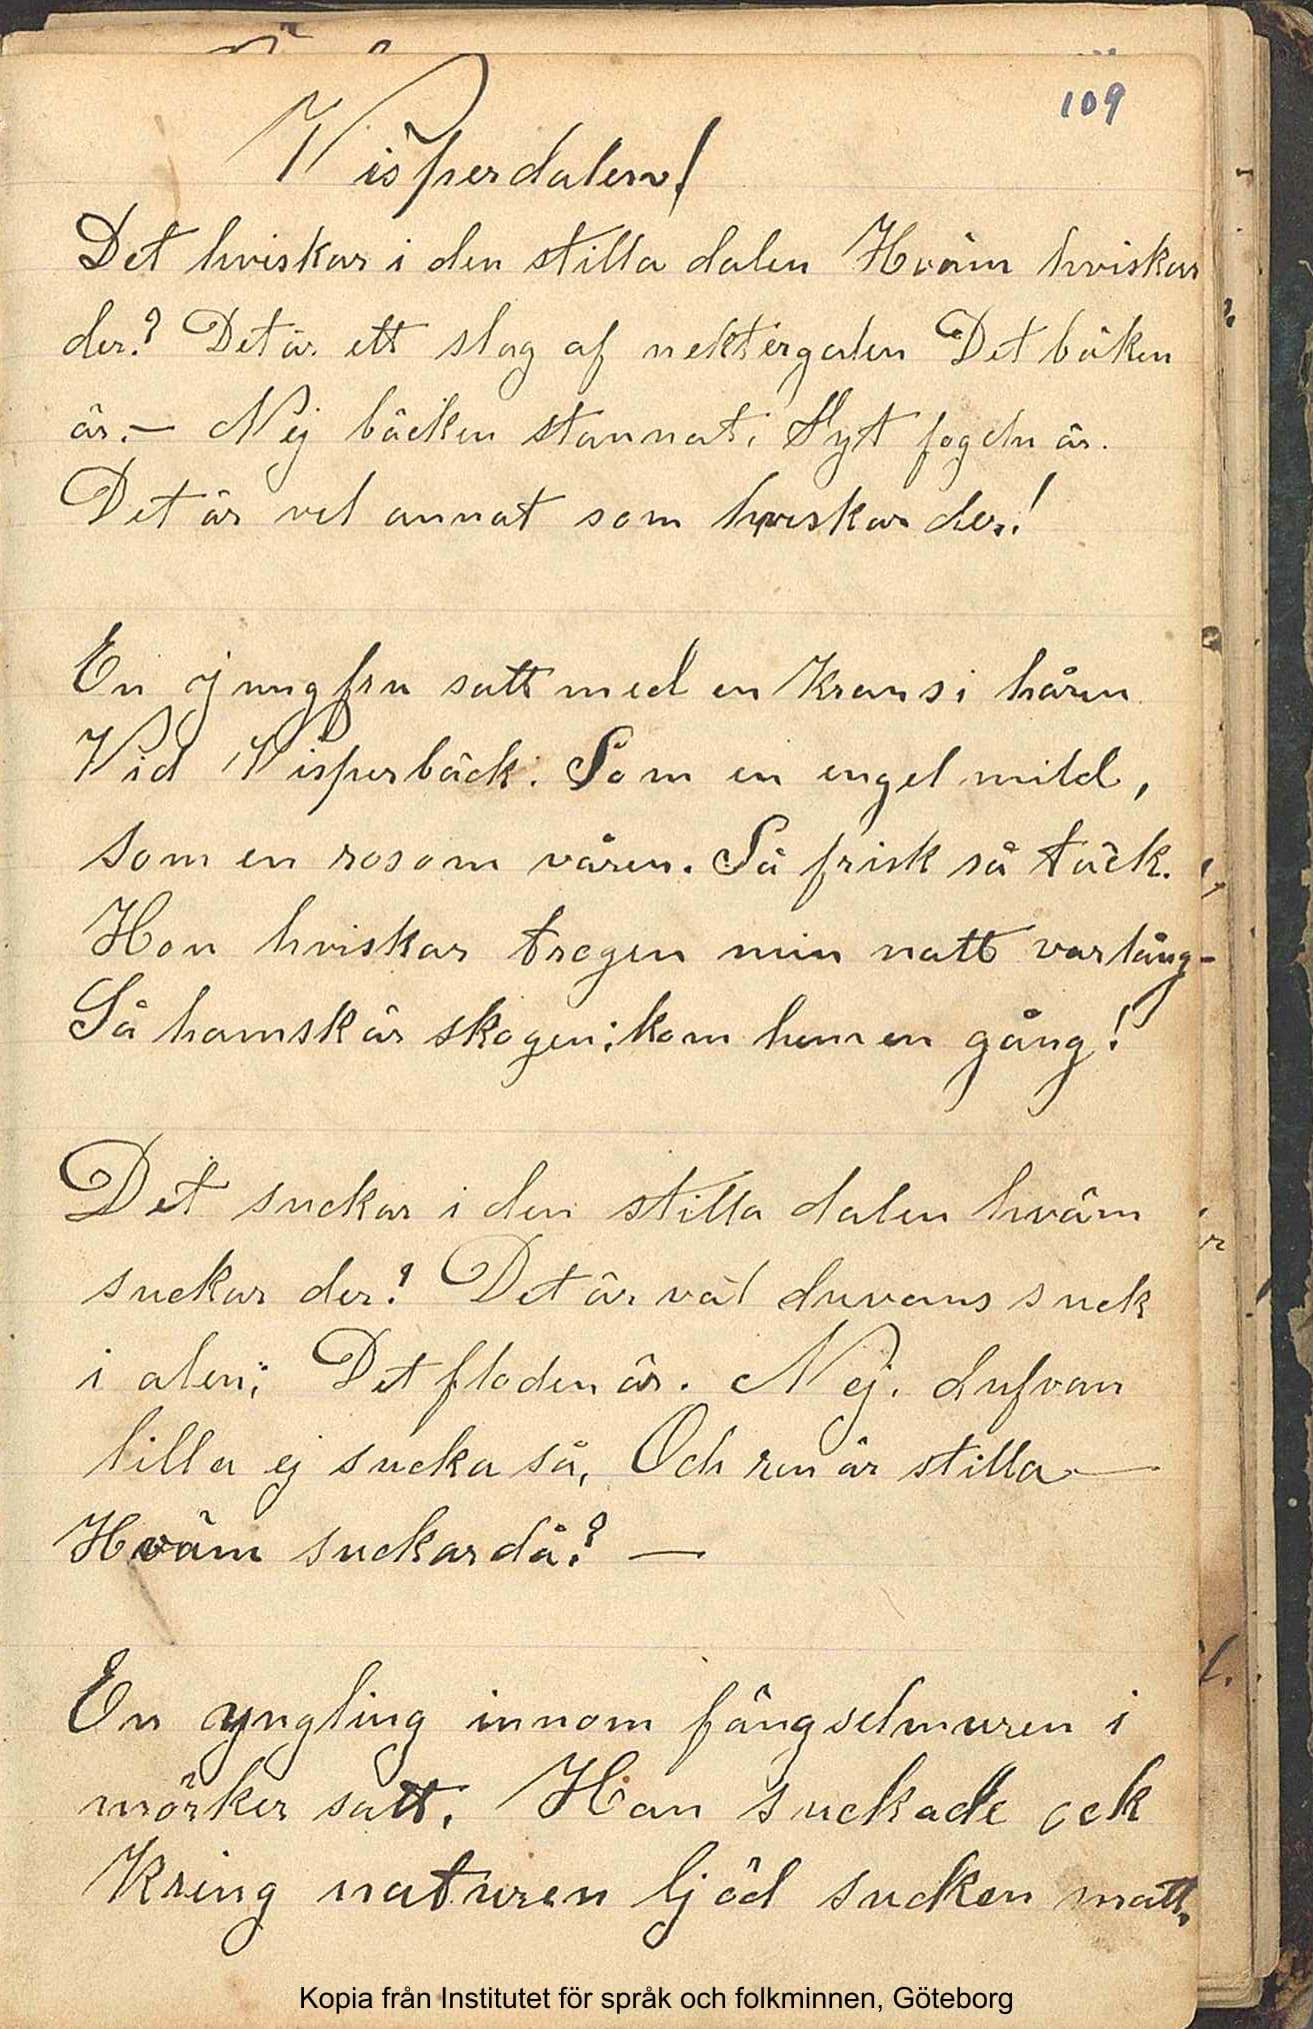 109
Visperdalen!
Det hviskar i den stilla dalen Hväm hviskar
der? Det är ett slag af nektergalen Det bäken
är. — Nej bäcken stannat, Tyst fogeln är.
Det är vel annat som hviskar der!
En jungfru satt med en Krans i håren
Vid Visperbäck. Som en engel mild,
som en ros om våren. Så frisk så täck.
Hon hviskar trogen min natt var lång –
Så hamsk är skogen; kom hem en gång!
Det suckar i den stilla dalen hväm
suckar der? Det är väl duvans suck
i alen; Det floden är. Nej. dufvan
lilla ej sucka så, Och ren är stilla —
Hväm suckar då? —
En yngling innom fängselmuren i
mörker satt. Han suckade ock
Kring naturen ljöd sucken matt.
Kopia från Institutet för språk och folkminnen, Göteborg